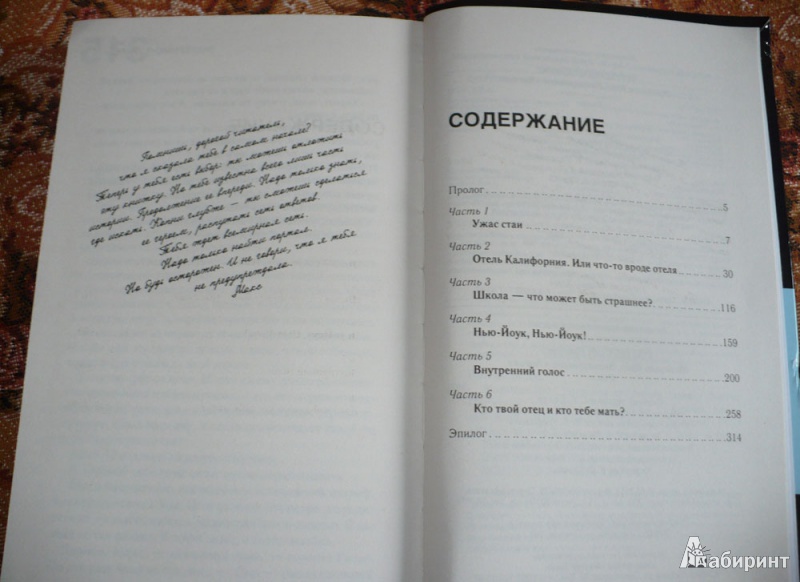 Помнишь, дорогой читатель,
что я сказала тебе в самом начале?
Теперь у тебя есть выбор: ты можешь отложить
эту книжку. Но тебе известно всего лишь части
истории. Продолжение ее впереди. Надо только знать,
где искать. Копни глубже – ты сможешь сделаться
ее героем, распутать сеть ответов.
Тебя ждет всемирная сеть.
Надо только найти портал.
Но будь осторожен. И не говори, что я тебя
не предупреждала.
Макс
СОДЕРЖАНИЕ
Пролог 5
Часть 1
Ужас стаи 7
Часть 2
Отель Калифорния. Или что-то вроде отеля 30
Часть 3
Школа — что может быть страшнее? 116
Часть 4
Нью-Йоук, Нью-Йоук! 159
Часть 5
Внутренний голос 200
Часть 6
Кто твой отец и кто тебе мать? 258
Эпилог 314
Лабиринт